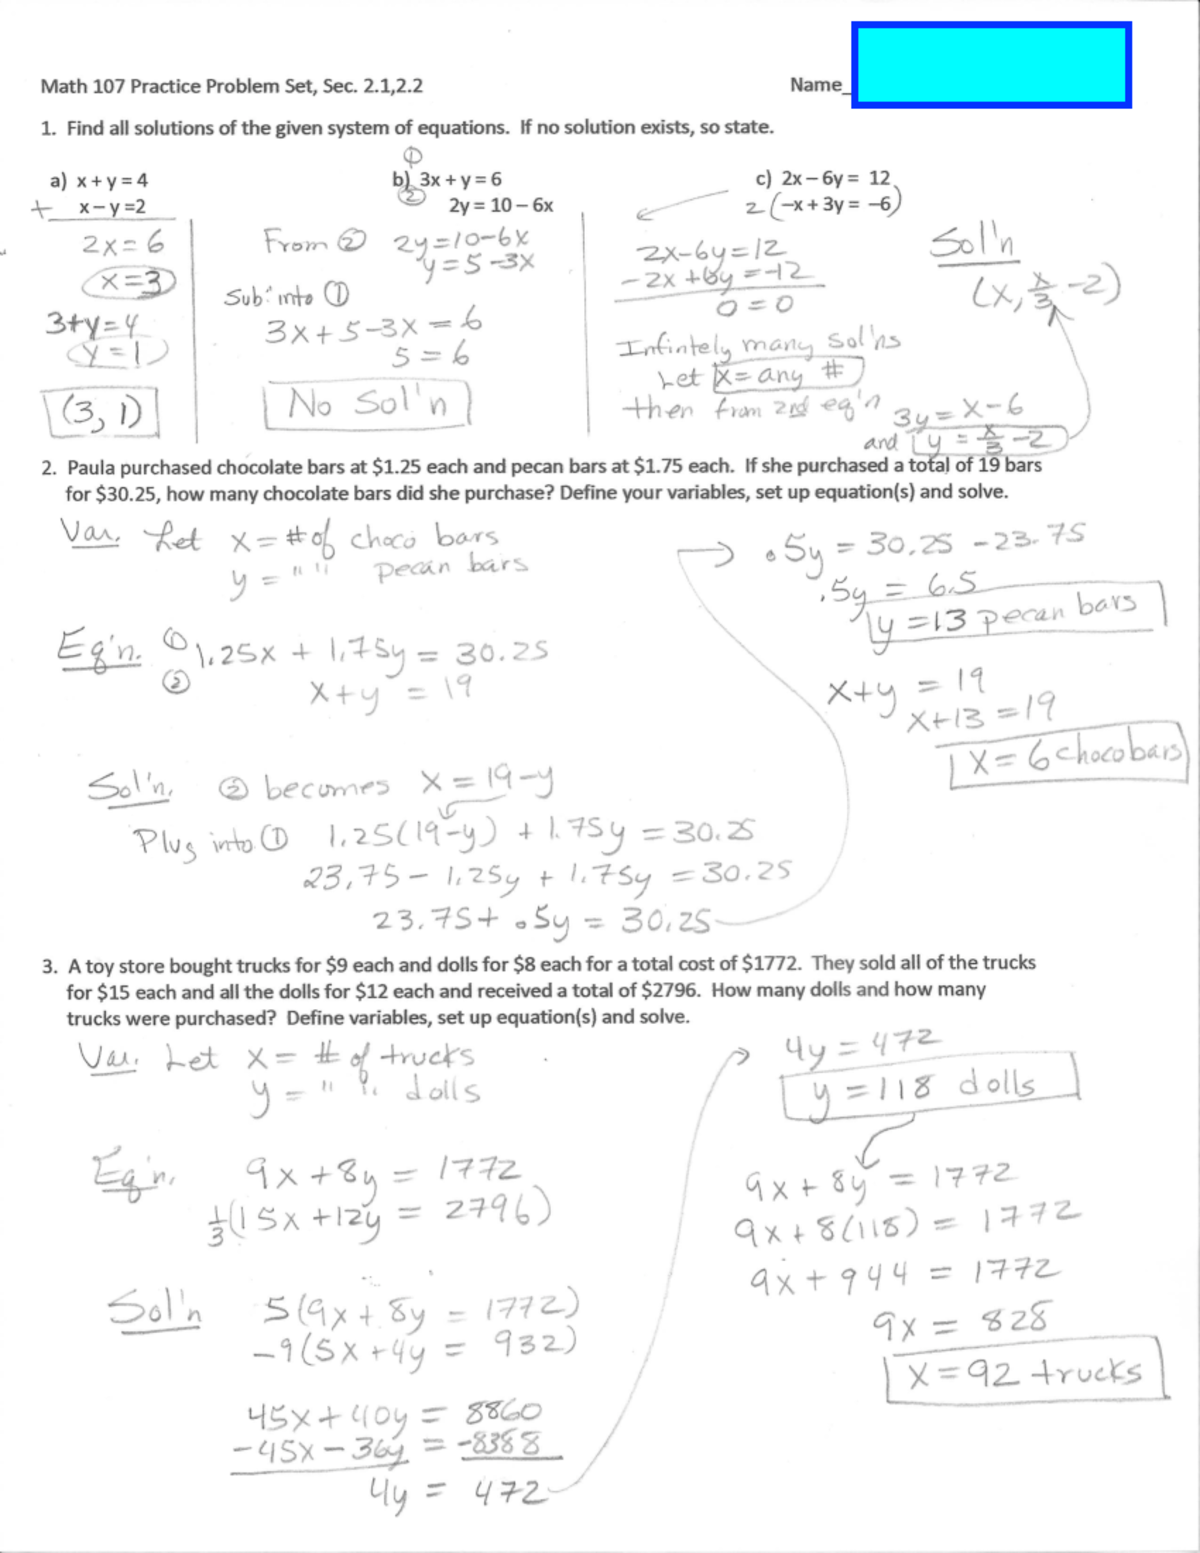 Math 107 Practice Problem Set, Sec. 2.1,2.2
Name_
1. Find all solutions of the given system of equations. If no solution exists, so state.
a) x + y = 4
+ x – y =2
2x = 6
x=3
3+y=4
y=1
(3, 1)
①
b) 3x + y = 6
② 2y = 10 – 6x
From ② 2y=10-6x
y=5-3x
Sub. into ①
3x+5-3x = 6
5=6
No Sol'n
c) 2x – 6y = 12
2(-x + 3y = -6)
2x-6y=12
-2x+6y=-12
0=0
Infintely many sol'ns
Let x= any #
then from 2nd eq'n 3y=x-6
and y = x/3 -2
Sol'n
(x, x/3 -2)
2. Paula purchased chocolate bars at $1.25 each and pecan bars at $1.75 each. If she purchased a total of 19 bars
for $30.25, how many chocolate bars did she purchase? Define your variables, set up equation(s) and solve.
Var. Let x=#of choco bars
y = " " pecan bars
Eq'n. ① 1.25x + 1.75y = 30.25
② x+y = 19
Sol'n. ② becomes x=19-y
Plug into ① 1.25(19-y) + 1.75y = 30.25
23.75 - 1.25y + 1.75y = 30.25
23.75+ .5y = 30.25
.5y = 30.25 -23.75
.5y = 6.5
y=13 pecan bars
x+y = 19
x+13 =19
x=6 choco bars
3. A toy store bought trucks for $9 each and dolls for $8 each for a total cost of $1772. They sold all of the trucks
for $15 each and all the dolls for $12 each and received a total of $2796. How many dolls and how many
trucks were purchased? Define variables, set up equation(s) and solve.
Var. Let x= # of trucks
y = " " dolls
Eq'n. 9x+8y = 1772
1/3(15x+12y = 2796)
Sol'n 5(9x+8y = 1772)
-9(5x+4y = 932)
45x+40y = 8860
-45x-36y = -8388
4y = 472
4y=472
y=118 dolls
9x+8y = 1772
9x+8(118) = 1772
9x+944 = 1772
9x = 828
x=92 trucks